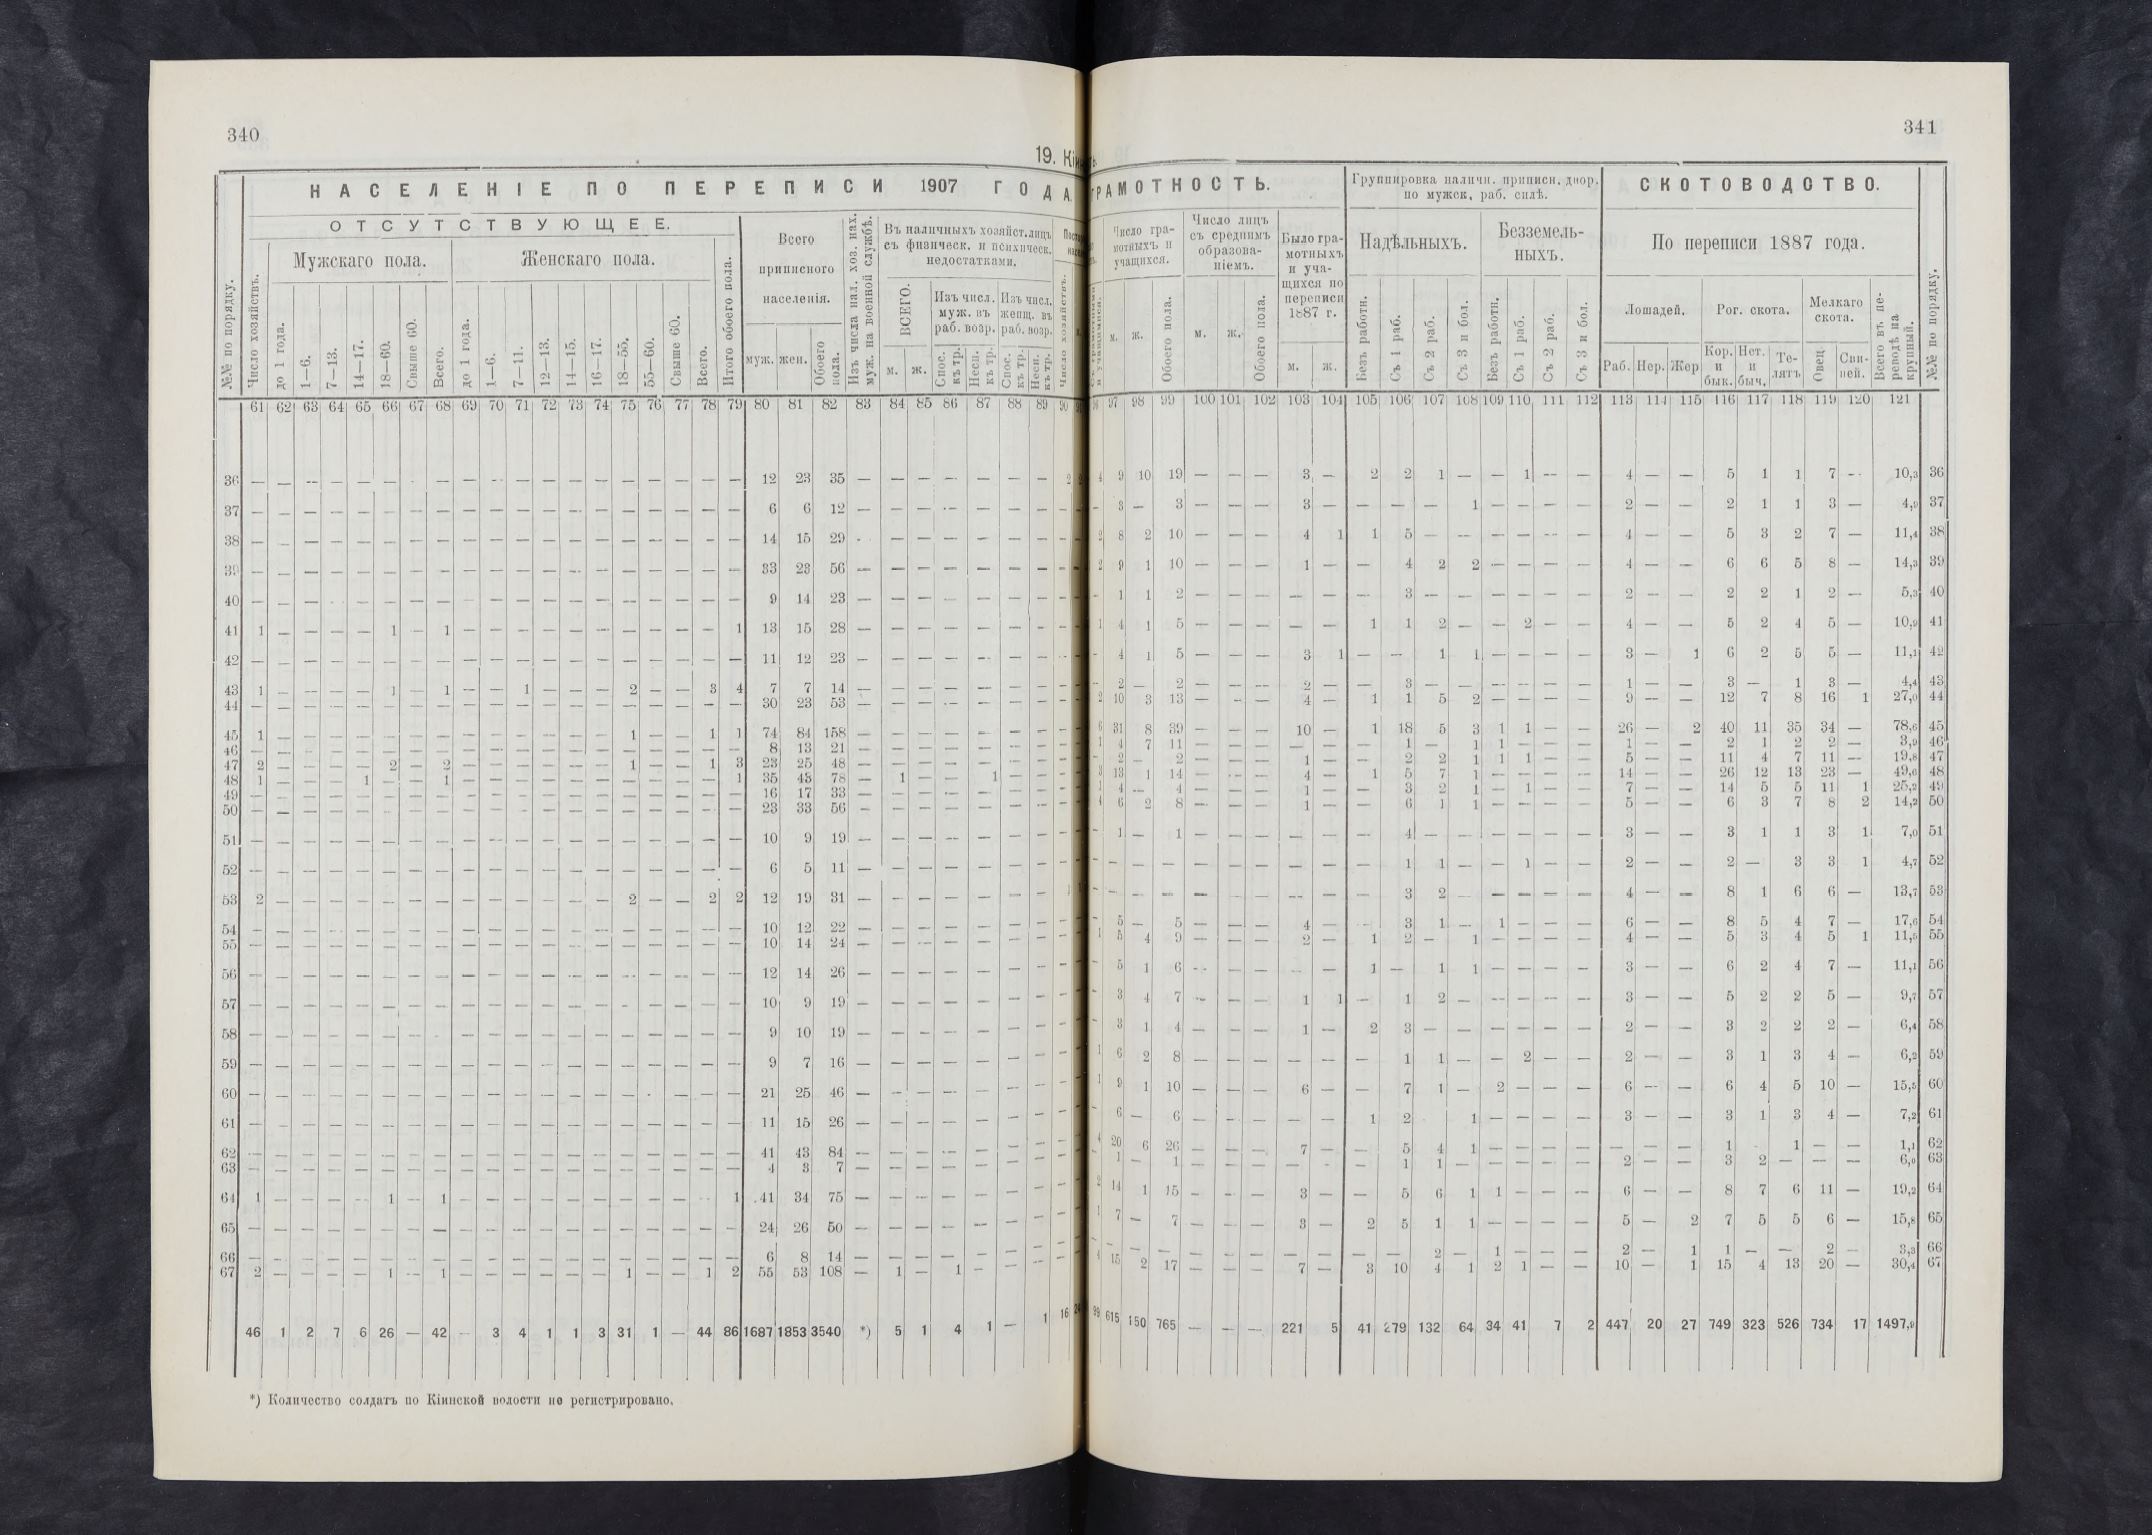 340
19. Кі
НАСЕЛЕНІЕ ПО ПЕРЕПИСИ 1907 ГОДА.
ОТСУТСТВУЮЩЕЕ.
Мужскаго пола.
Женскаго пола.
№№ по порядку.
Число хозяйствъ.
до 1 года.
1—6.
7—13.
14—17.
18—60.
Свыше 60.
Всего.
до 1 года.
1—6.
7—11.
12—13.
14—15.
16—17.
18—55.
55—60.
Свыше 60.
Всего.
Итого обоего пола.
Всего
приписного
населенія.
муж. жен.
Обоего пола.
Изъ числа нал. хоз. нах.
муж. на военной службѣ.
Въ наличныхъ хозяйст. лицъ
съ физическ. и психическ.
недостатками.
ВСЕГО.
м. ж.
Изъ числ.
муж. въ
раб. возр.
Спос. къ тр.
Несп. къ тр.
Изъ числ.
женщ. въ
раб. возр.
Спос. къ тр.
Несп. къ тр.
Число хозяйствъ.
61 62 63 64 65 66 67 68 69 70 71 72 73 74 75 76 77 78 79 80 81 82 83 84 85 86 87 88 89 90
36 — — — — — — — — — — — — — — — — — — — 12 23 35 — — — — — — — 2
37 — — — — — — — — — — — — — — — — — — — 6 6 12 — — — — — — — —
38 — — — — — — — — — — — — — — — — — — — 14 15 29 — — — — — — — —
39 — — — — — — — — — — — — — — — — — — — 33 23 56 — — — — — — — —
40 — — — — — — — — — — — — — — — — — — — 9 14 23 — — — — — — — —
41 1 — — — — 1 — 1 — — — — — — — — — — 1 13 15 28 — — — — — — — —
42 — — — — — — — — — — — — — — — — — — — 11 12 23 — — — — — — — —
43 1 — — — — 1 — 1 — — 1 — — — 2 — — 3 4 7 7 14 — — — — — — — —
44 — — — — — — — — — — — — — — — — — — — 30 23 53 — — — — — — — —
45 1 — — — — — — — — — — — — — 1 — — 1 1 74 84 158 — — — — — — — —
46 — — — — — — — — — — — — — — — — — — — 8 13 21 — — — — — — — —
47 2 — — — — 2 — 2 — — — — — — 1 — — 1 3 23 25 48 — — — — — — — —
48 1 — — — 1 — — 1 — — — — — — — — — — 1 35 43 78 — 1 — — 1 — — —
49 — — — — — — — — — — — — — — — — — — — 16 17 33 — — — — — — — —
50 — — — — — — — — — — — — — — — — — — — 23 33 56 — — — — — — — —
51 — — — — — — — — — — — — — — — — — — — 10 9 19 — — — — — — — —
52 — — — — — — — — — — — — — — — — — — — 6 5 11 — — — — — — — —
53 2 — — — — — — — — — — — — — 2 — — 2 2 12 19 31 — — — — — — —
54 — — — — — — — — — — — — — — — — — — — 10 12 22 — — — — — — — —
55 — — — — — — — — — — — — — — — — — — — 10 14 24 — — — — — — — —
56 — — — — — — — — — — — — — — — — — — — 12 14 26 — — — — — — — —
57 — — — — — — — — — — — — — — — — — — — 10 9 19 — — — — — — — —
58 — — — — — — — — — — — — — — — — — — — 9 10 19 — — — — — — — —
59 — — — — — — — — — — — — — — — — — — — 9 7 16 — — — — — — — —
60 — — — — — — — — — — — — — — — — — — — 21 25 46 — — — — — — — —
61 — — — — — — — — — — — — — — — — — — — 11 15 26 — — — — — — — —
62 — — — — — — — — — — — — — — — — — — — 41 43 84 — — — — — — — —
63 — — — — — — — — — — — — — — — — — — — 4 3 7 — — — — — — — —
64 1 — — — — 1 — 1 — — — — — — — — — — 1 41 34 75 — — — — — — — —
65 — — — — — — — — — — — — — — — — — — — 24 26 50 — — — — — — — —
66 — — — — — — — — — — — — — — — — — — — 6 8 14 — — — — — — — —
67 2 — — — — 1 — 1 — — — — — — 1 — — 1 2 55 53 108 — 1 — 1 — — — —
46 1 2 7 6 26 — 42 — 3 4 1 1 3 31 1 — 44 86 1687 1853 3540 *) 5 1 4 1 — 1 16
*) Количество солдатъ по Кіинской волости не регистрировано.
341
ГРАМОТНОСТЬ.
Число гра-
мотныхъ и
учащихся.
м. ж. Обоего пола.
Число лицъ
съ среднимъ
образова-
ніемъ.
м. ж. Обоего пола.
Было гра-
мотныхъ
и уча-
щихся по
переписи
1887 г.
м. ж.
Группировка наличн. приписн. двор.
по мужск. раб. силѣ.
Надѣльныхъ.
Безъ работн.
Съ 1 раб.
Съ 2 раб.
Съ 3 и бол.
Безземель-
ныхъ.
Безъ работн.
Съ 1 раб.
Съ 2 раб.
Съ 3 и бол.
СКОТОВОДСТВО.
По переписи 1887 года.
Лошадей.
Раб. Нер. Жер
Рог. скота.
Кор. и бык.
Нет. и быч.
Те-
лятъ
Мелкаго
скота.
Овец
Сви-
ней.
Всего въ пе-
реводѣ на
крупный.
№№ по порядку.
97 98 99 100 101 102 103 104 105 106 107 108 109 110 111 112 113 114 115 116 117 118 119 120 121
4 9 10 19 — — — 3 — 2 2 1 — — 1 — — 4 — — 5 1 1 7 — 10,3 36
— 3 — 3 — — — 3 — — — — 1 — — — — 2 — — 2 1 1 3 — 4,9 37
2 8 2 10 — — — 4 1 1 5 — — — — — — 4 — — 5 3 2 7 — 11,4 38
2 9 1 10 — — — 1 — — 4 2 2 — — — — 4 — — 6 6 5 8 — 14,3 39
— 1 1 2 — — — — — — 3 — — — — — — 2 — — 2 2 1 2 — 5,3 40
1 4 1 5 — — — — — 1 1 2 — — 2 — — 4 — — 5 2 4 5 — 10,9 41
— 4 1 5 — — — 3 1 — — 1 1 — — — — 3 — 1 6 2 5 5 — 11,1 42
— 2 — 2 — — — 2 — — 3 — — — — — — 1 — — 3 — 1 3 — 4,4 43
2 10 3 13 — — — 4 — 1 1 5 2 — — — — 9 — — 12 7 8 16 1 27,0 44
6 31 8 39 — — — 10 — 1 18 5 3 1 1 — — 26 — 2 40 11 35 34 — 78,6 45
1 4 7 11 — — — — — — 1 — 1 1 — — — 1 — — 2 1 2 2 — 3,9 46
— 2 — 2 — — — 1 — — 2 2 1 1 1 — — 5 — — 11 4 7 11 — 19,8 47
3 13 1 14 — — — 4 — 1 5 7 1 — — — — 14 — — 26 12 13 23 — 49,6 48
1 4 — 4 — — — 1 — — 3 2 1 — 1 — — 7 — — 14 5 5 11 1 25,2 49
4 6 2 8 — — — 1 — — 6 1 1 — — — — 5 — — 6 3 7 8 2 14,2 50
— 1 — 1 — — — — — — 4 — — — — — — 3 — — 3 1 1 3 1 7,0 51
— — — — — — — — — — 1 1 — — 1 — — 2 — — 2 — 3 3 1 4,7 52
— — — — — — — — — — 3 2 — — — — — 4 — — 8 1 6 6 — 13,7 53
— 5 — 5 — — — 4 — — 3 1 — 1 — — — 6 — — 8 5 4 7 — 17,6 54
1 5 4 9 — — — 2 — 1 2 — 1 — — — — 4 — — 5 3 4 5 1 11,5 55
— 5 1 6 — — — — — 1 — 1 1 — — — — 3 — — 6 2 4 7 — 11,1 56
— 3 4 7 — — — 1 1 — 1 2 — — — — — 3 — — 5 2 2 5 — 9,7 57
— 3 1 4 — — — 1 — 2 3 — — — — — — 2 — — 3 2 2 2 — 6,4 58
1 6 2 8 — — — — — — 1 1 — — 2 — — 2 — — 3 1 3 4 — 6,2 59
1 9 1 10 — — — 6 — — 7 1 — 2 — — — 6 — — 6 4 5 10 — 15,5 60
— 6 — 6 — — — — — 1 2 1 — — — — 3 — — 3 1 3 4 — 7,2 61
4 20 6 26 — — — 7 — — 5 4 1 — — — — — — — 1 1 — — 1,1 62
— 1 — 1 — — — — — — 1 1 — — — — — 2 — — 3 2 — — — 6,0 63
2 14 1 15 — — — 3 — — 5 6 1 1 — — — 6 — — 8 7 6 11 — 19,2 64
1 7 — 7 — — — 3 — 2 5 1 1 — — — — 5 — 2 7 5 5 6 — 15,8 65
— — — — — — — — — — — 2 — 1 — — — 2 — 1 1 — — 2 — 3,3 66
4 15 2 17 — — — 7 — 3 10 4 1 2 1 — — 10 — 1 15 4 13 20 — 30,4 67
99 615 150 765 — — — 221 5 41 279 132 64 34 41 7 2 447 20 27 749 323 526 734 17 1497,9